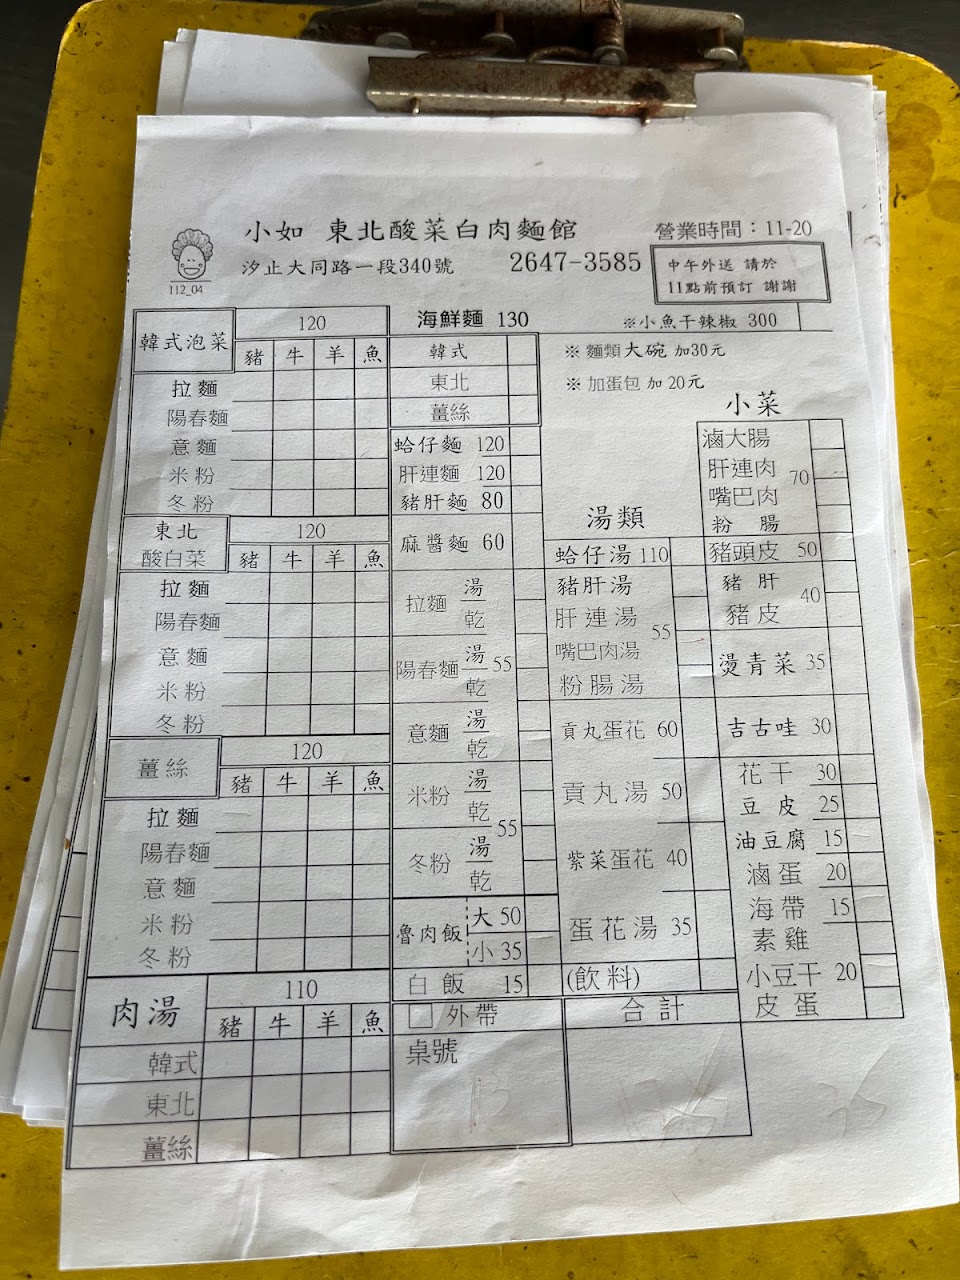 小如 東北酸菜白肉麵館
營業時間：11-20
汐止大同路一段340號
2647-3585
中午外送 請於
11點前預訂 謝謝
112_04
韓式泡菜
120
豬 牛 羊 魚
拉麵
陽春麵
意麵
米粉
冬粉
東北
酸白菜
120
豬 牛 羊 魚
拉麵
陽春麵
意麵
米粉
冬粉
薑絲
120
豬 牛 羊 魚
拉麵
陽春麵
意麵
米粉
冬粉
肉湯
110
豬 牛 羊 魚
韓式
東北
薑絲
海鮮麵 130
韓式
東北
薑絲
蛤仔麵 120
肝連麵 120
豬肝麵 80
麻醬麵 60
拉麵 湯
乾
陽春麵 湯 55
乾
意麵 湯
乾
米粉 湯
乾
55
冬粉 湯
乾
魯肉飯 大 50
小 35
白飯 15
外帶
桌號
※小魚干辣椒 300
※ 麵類大碗 加30元
※ 加蛋包 加 20元
湯類
蛤仔湯 110
豬肝湯
肝連湯
55
嘴巴肉湯
粉腸湯
貢丸蛋花 60
貢丸湯 50
紫菜蛋花 40
蛋花湯 35
(飲料)
合計
小菜
滷大腸
肝連肉
70
嘴巴肉
粉腸
豬頭皮 50
豬肝
40
豬皮
燙青菜 35
吉古哇 30
花干 30
豆皮 25
油豆腐 15
滷蛋 20
海帶 15
素雞
小豆干 20
皮蛋